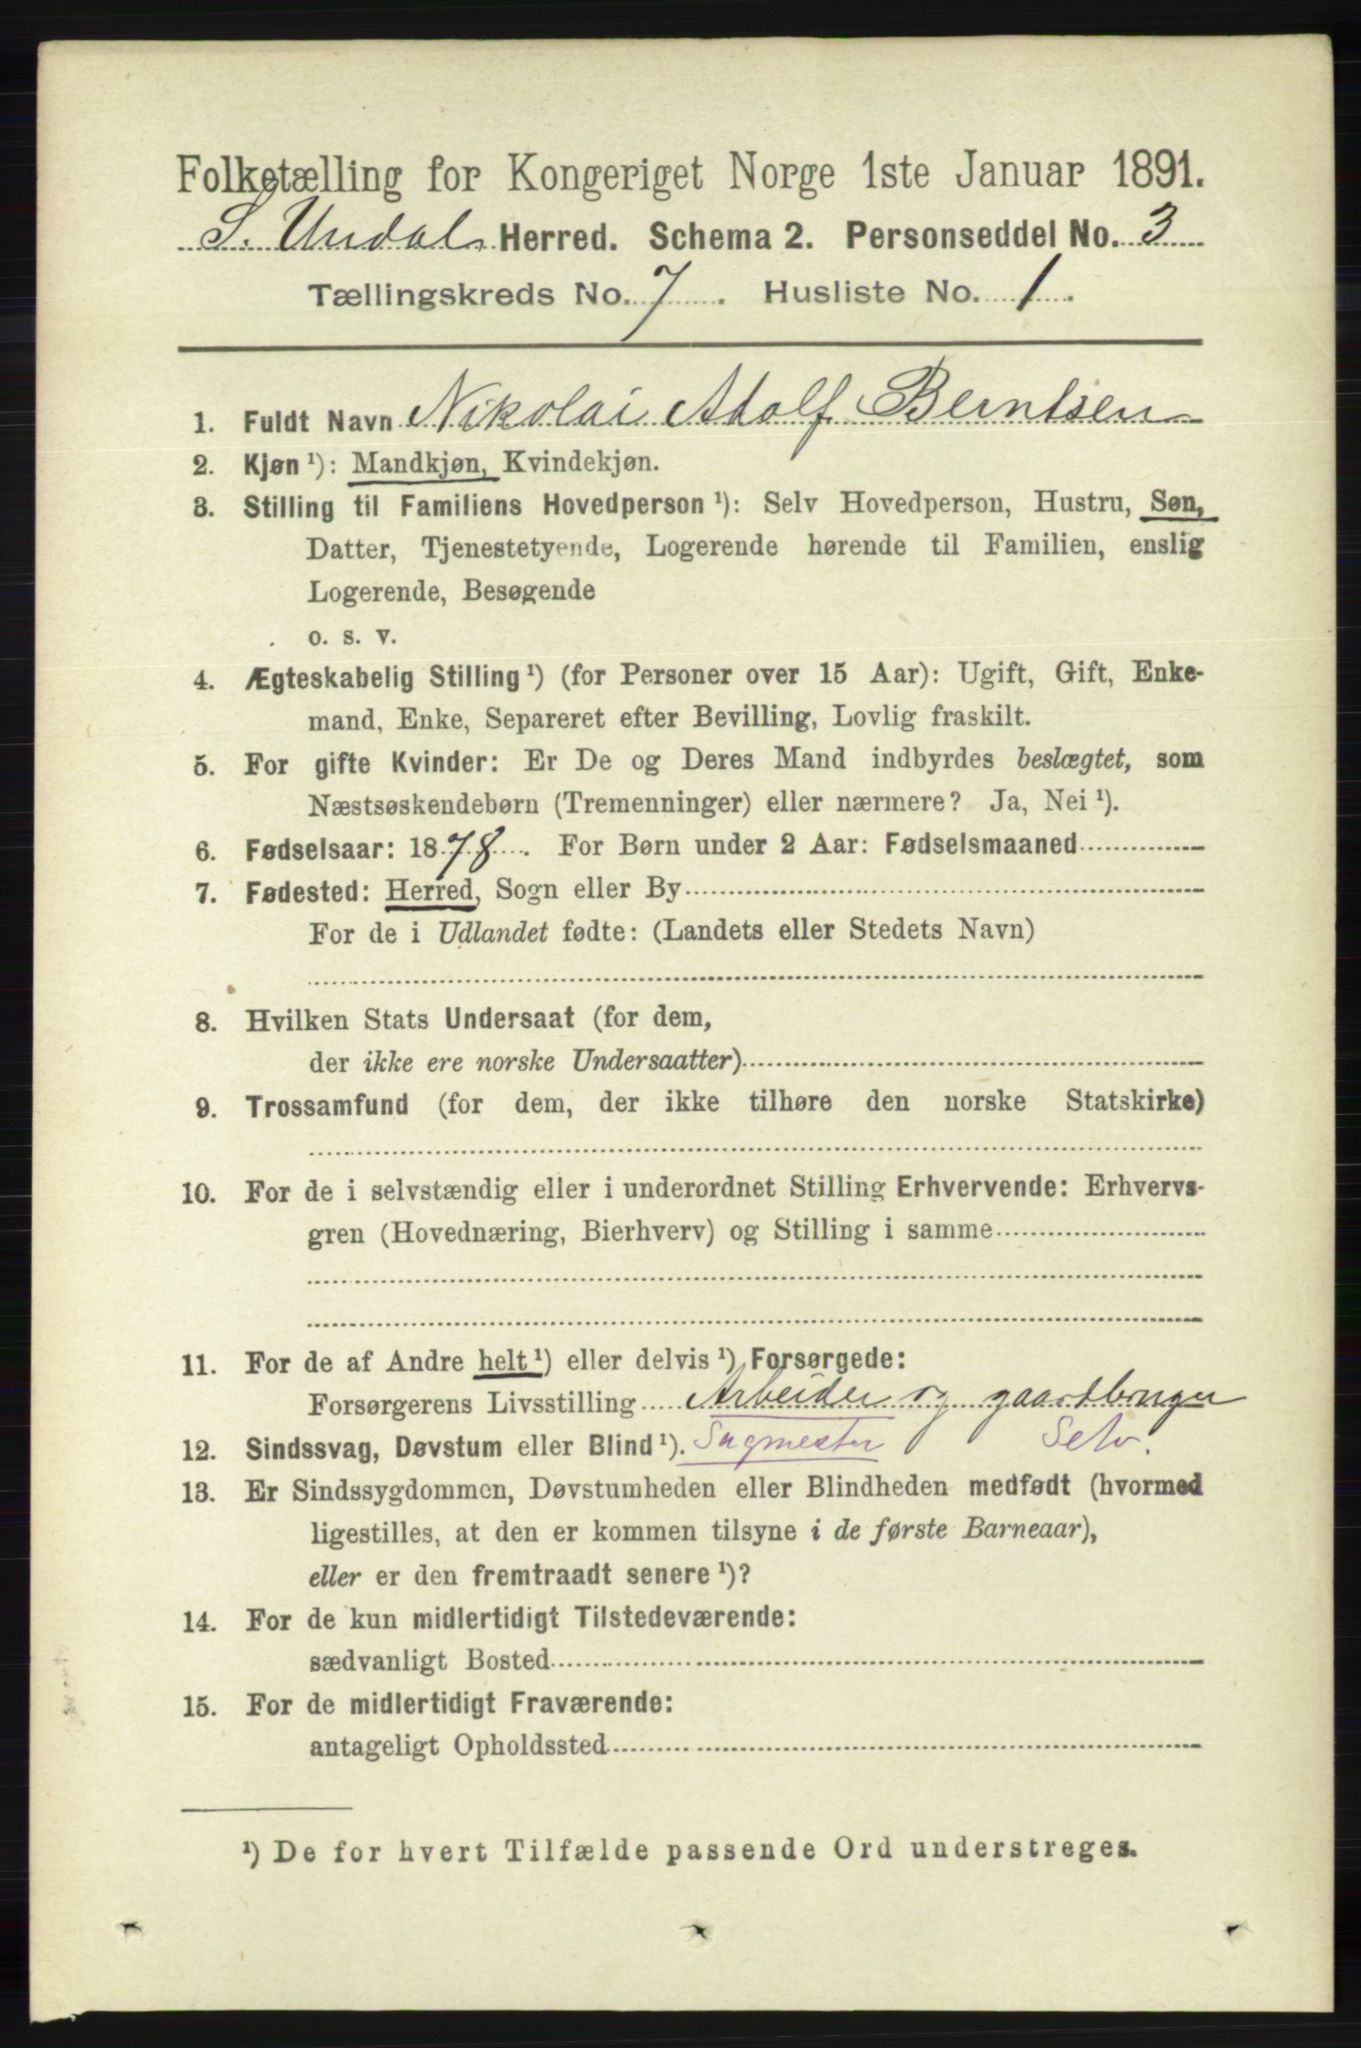 Folketælling for Kongeriget Norge 1ste Januar 1891.
S. Undal Herred. Schema 2. Personseddel No. 3
Tællingskreds No. 7. Husliste No. 1.
1. Fuldt Navn Nikolai Adolf Berntsen
2. Kjøn ¹): Mandkjøn, Kvindekjøn.
3. Stilling til Familiens Hovedperson ¹): Selv Hovedperson, Hustru, Søn,
Datter, Tjenestetyende, Logerende hørende til Familien, enslig
Logerende, Besøgende
o. s. v.
4. Ægteskabelig Stilling ¹) (for Personer over 15 Aar): Ugift, Gift, Enke-
mand, Enke, Separeret efter Bevilling, Lovlig fraskilt.
5. For gifte Kvinder: Er De og Deres Mand indbyrdes beslægtet, som
Næstsøskendebørn (Tremenninger) eller nærmere? Ja, Nei ¹).
6. Fødselsaar: 1878. For Børn under 2 Aar: Fødselsmaaned
7. Fødested: Herred, Sogn eller By
For de i Udlandet fødte: (Landets eller Stedets Navn)
8. Hvilken Stats Undersaat (for dem,
der ikke ere norske Undersaatter)
9. Trossamfund (for dem, der ikke tilhøre den norske Statskirke)
10. For de i selvstændig eller i underordnet Stilling Erhvervende: Erhvervs-
gren (Hovednæring, Bierhverv) og Stilling i samme
11. For de af Andre helt ¹) eller delvis ¹) Forsørgede:
Forsørgerens Livsstilling Arbeider og gaardbruger
12. Sindssvag, Døvstum eller Blind ¹). Sagmester Selv.
13. Er Sindssygdommen, Døvstumheden eller Blindheden medfødt (hvormed
ligestilles, at den er kommen tilsyne i de første Barneaar),
eller er den fremtraadt senere ¹)?
14. For de kun midlertidigt Tilstedeværende:
sædvanligt Bosted
15. For de midlertidigt Fraværende:
antageligt Opholdssted
¹) De for hvert Tilfælde passende Ord understreges.